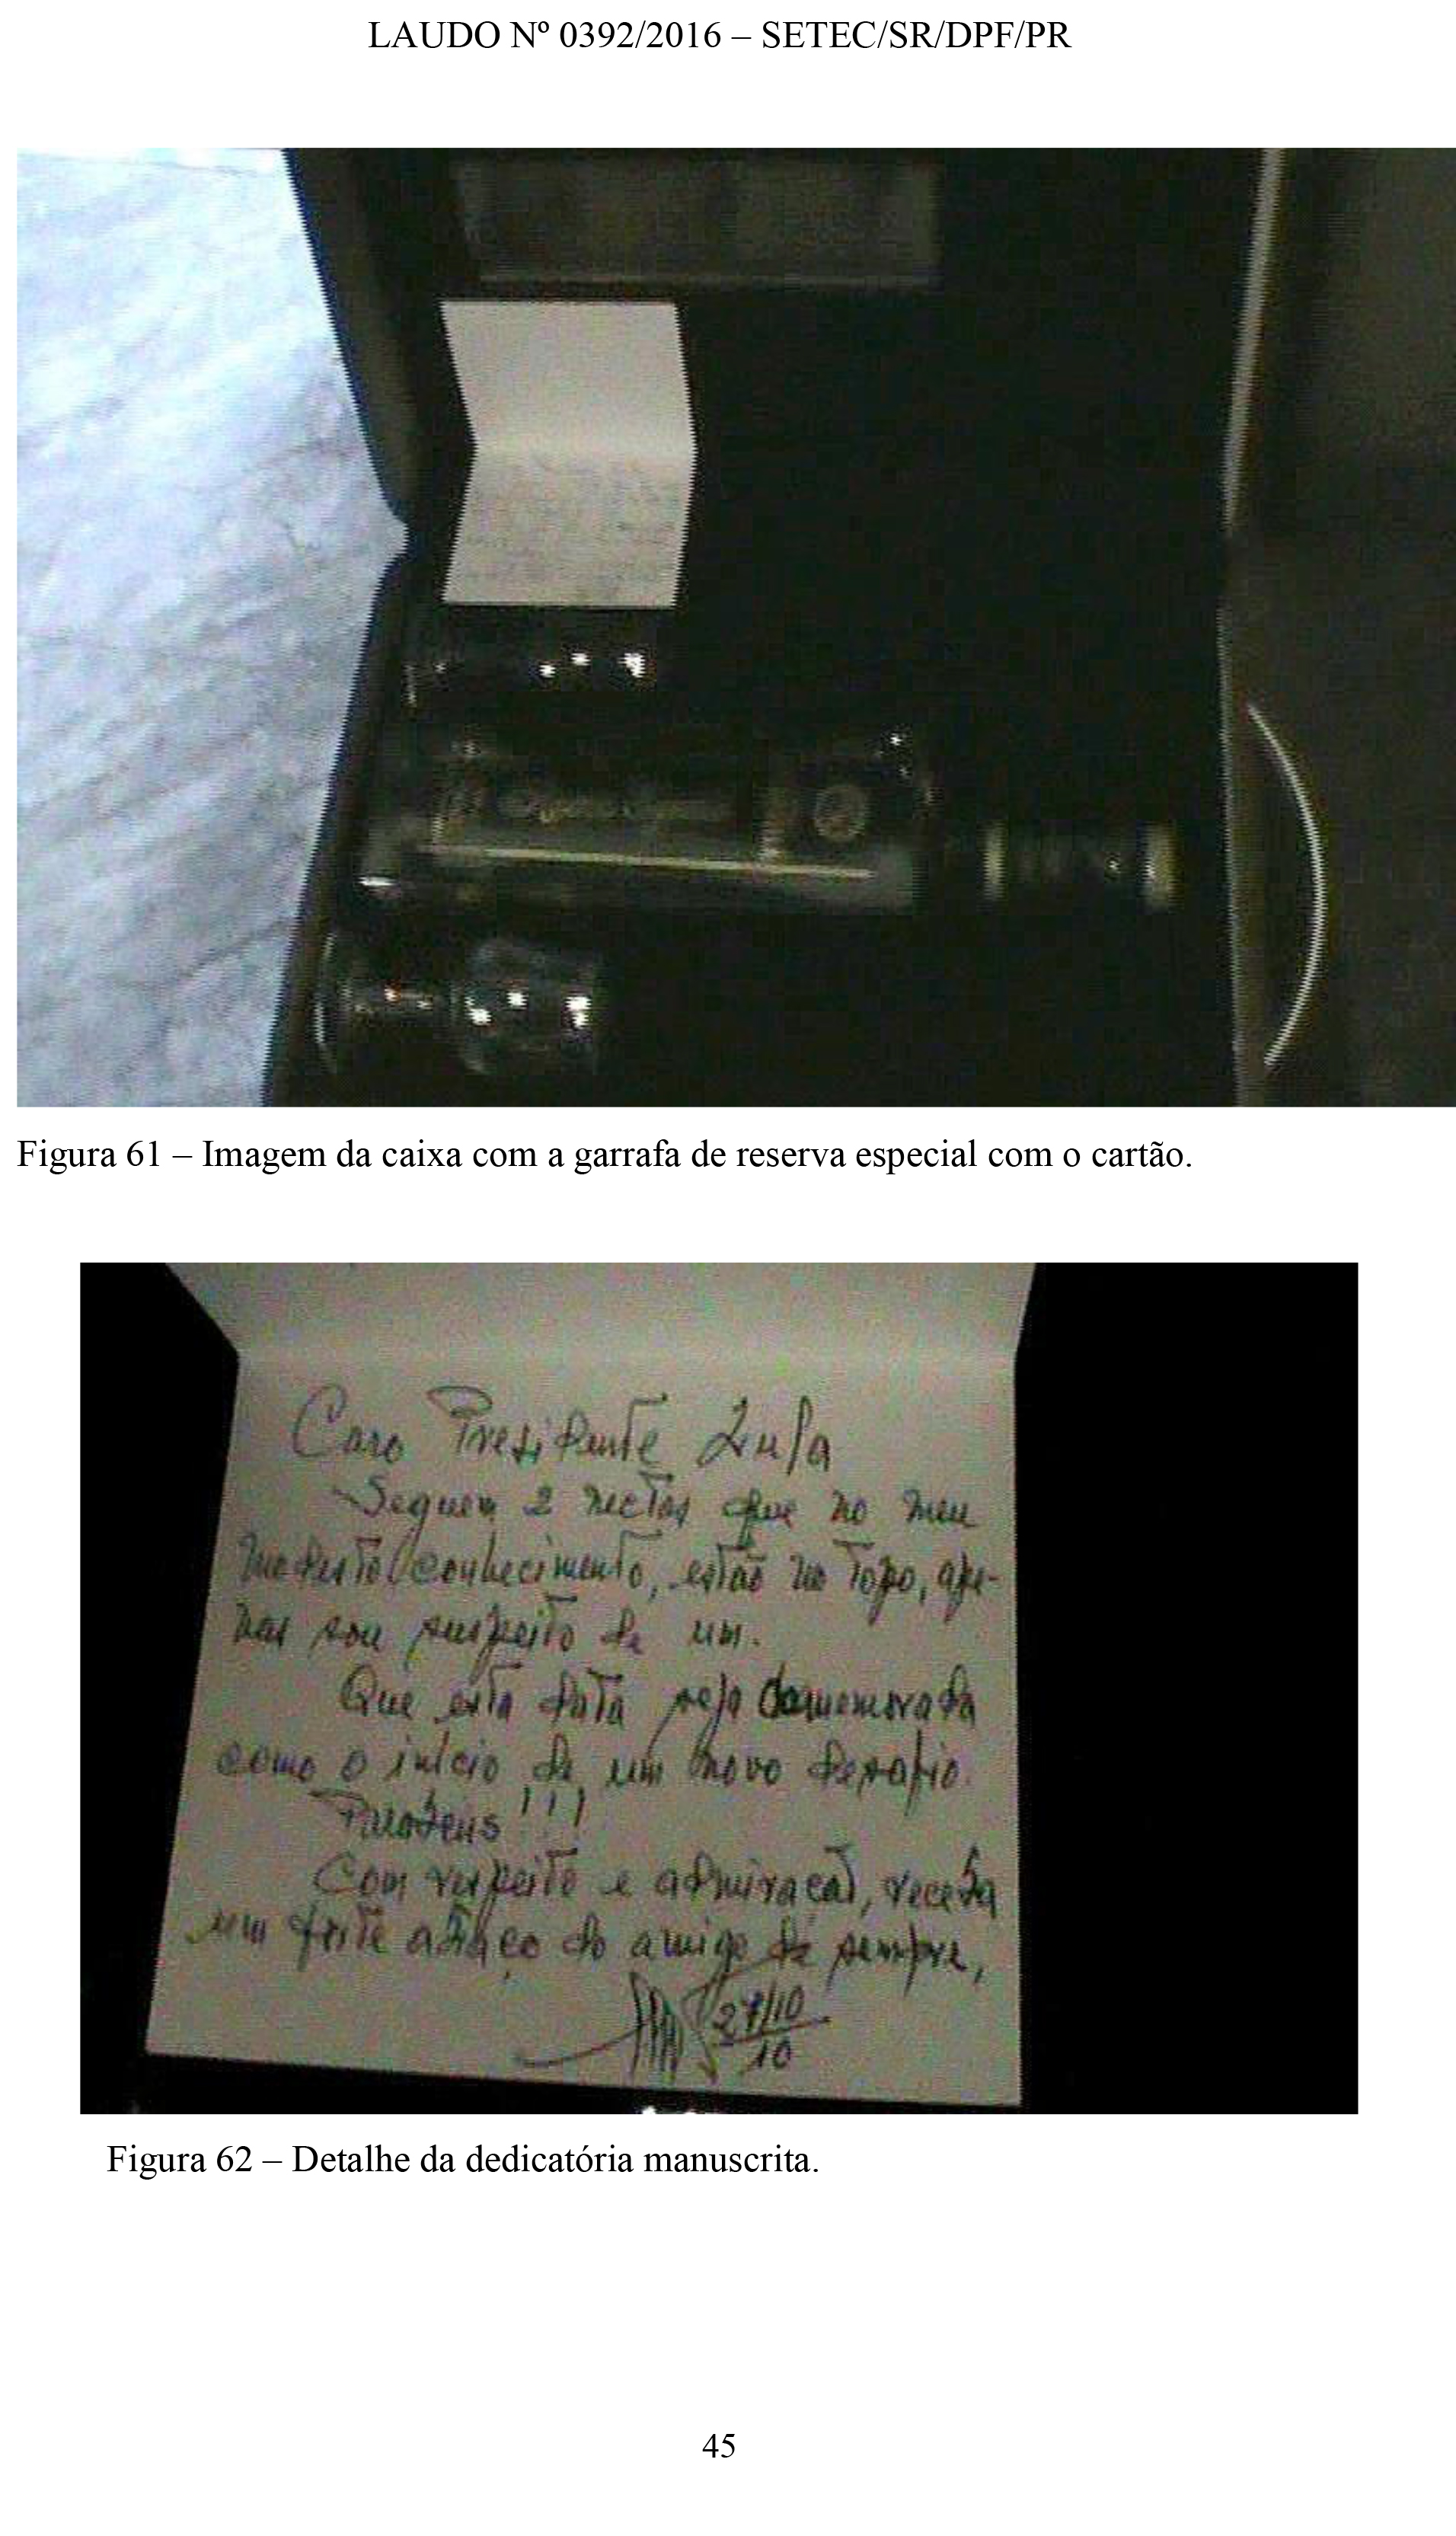 LAUDO Nº 0392/2016 – SETEC/SR/DPF/PR
Figura 61 – Imagem da caixa com a garrafa de reserva especial com o cartão.
Caro Presidente Lula
Seguem 2 nectas que no meu
modesto conhecimento, estão no topo, ape-
nas sou suspeito de um.
Que esta data seja comemorada
como o início de um novo desafio.
Parabéns!!!
Com respeito e admiração, receba
um forte abraço do amigo de sempre,
27/10
10
Figura 62 – Detalhe da dedicatória manuscrita.
45